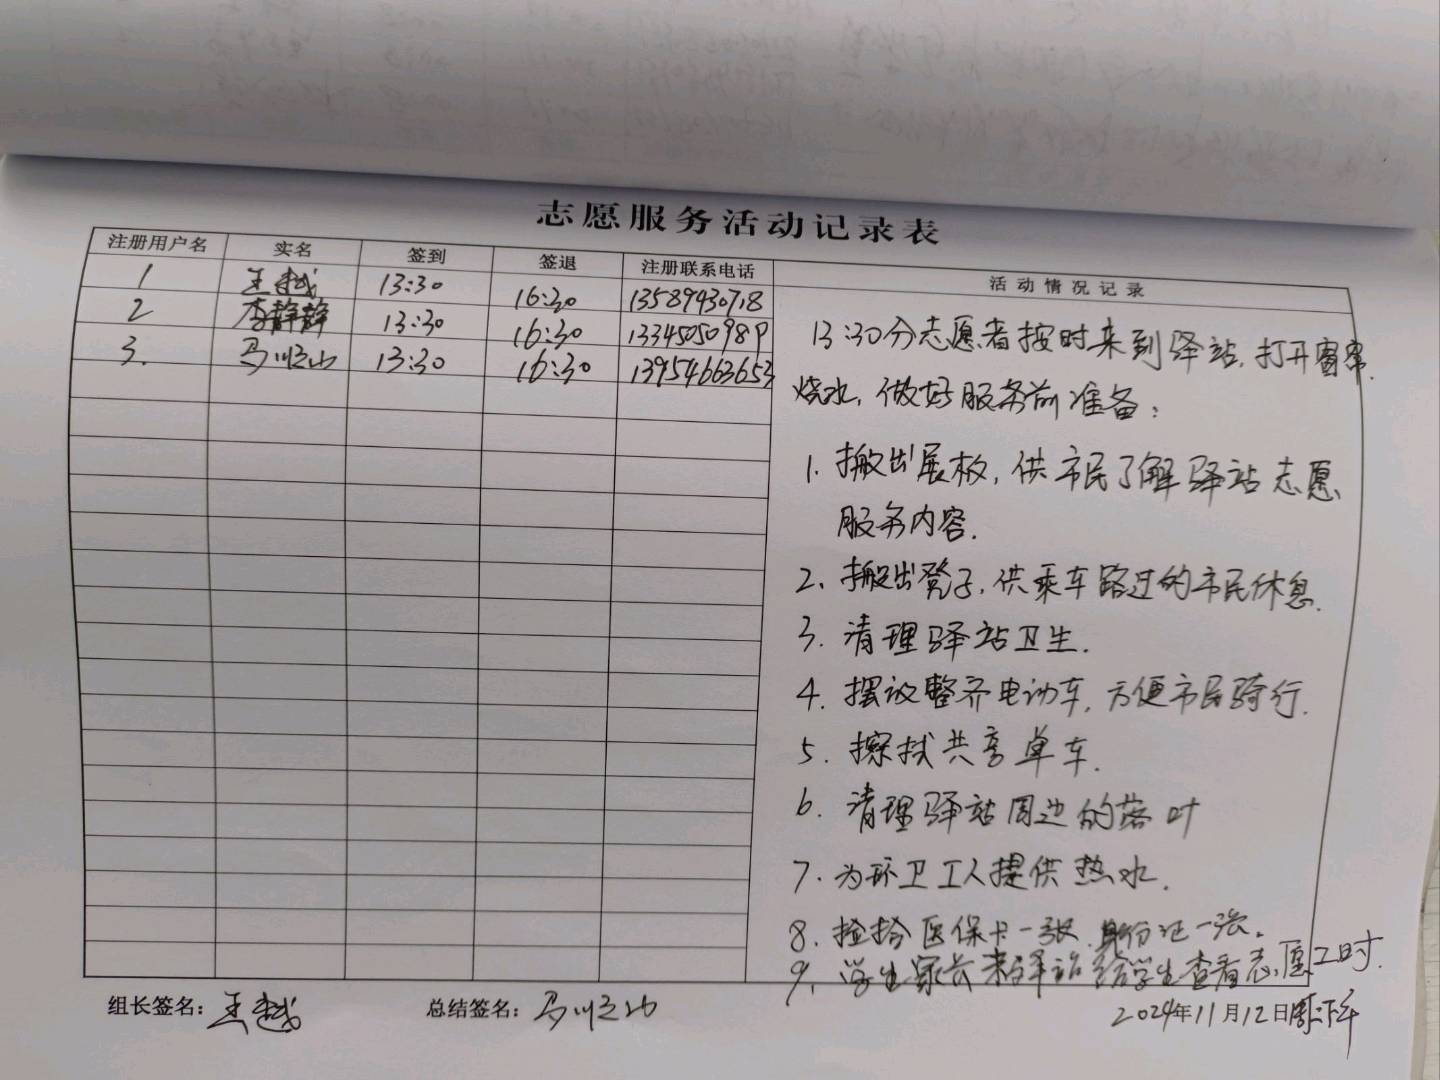 志愿服务活动记录表
注册用户名 实名 签到 签退 注册联系电话 活动情况记录
1 王越 13:30 16:30 13589430718
2 李静静 13:30 16:30 13345050989
3. 马川之山 13:30 16:30 13954663653
13:30分志愿者按时来到驿站,打开窗帘.
烧水,做好服务前准备:
1. 搬出展板,供市民了解驿站志愿
服务内容.
2. 搬出凳子,供乘车路过的市民休息.
3. 清理驿站卫生.
4. 摆放整齐电动车,方便市民骑行.
5. 擦拭共享单车.
6. 清理驿站周边的落叶
7. 为环卫工人提供热水.
8. 捡拾医保卡一张.身份证一张。
9. 学生家长来驿站给学生查看志愿工时.
组长签名:王越 总结签名:马川之山 2024年11月12日周二下午